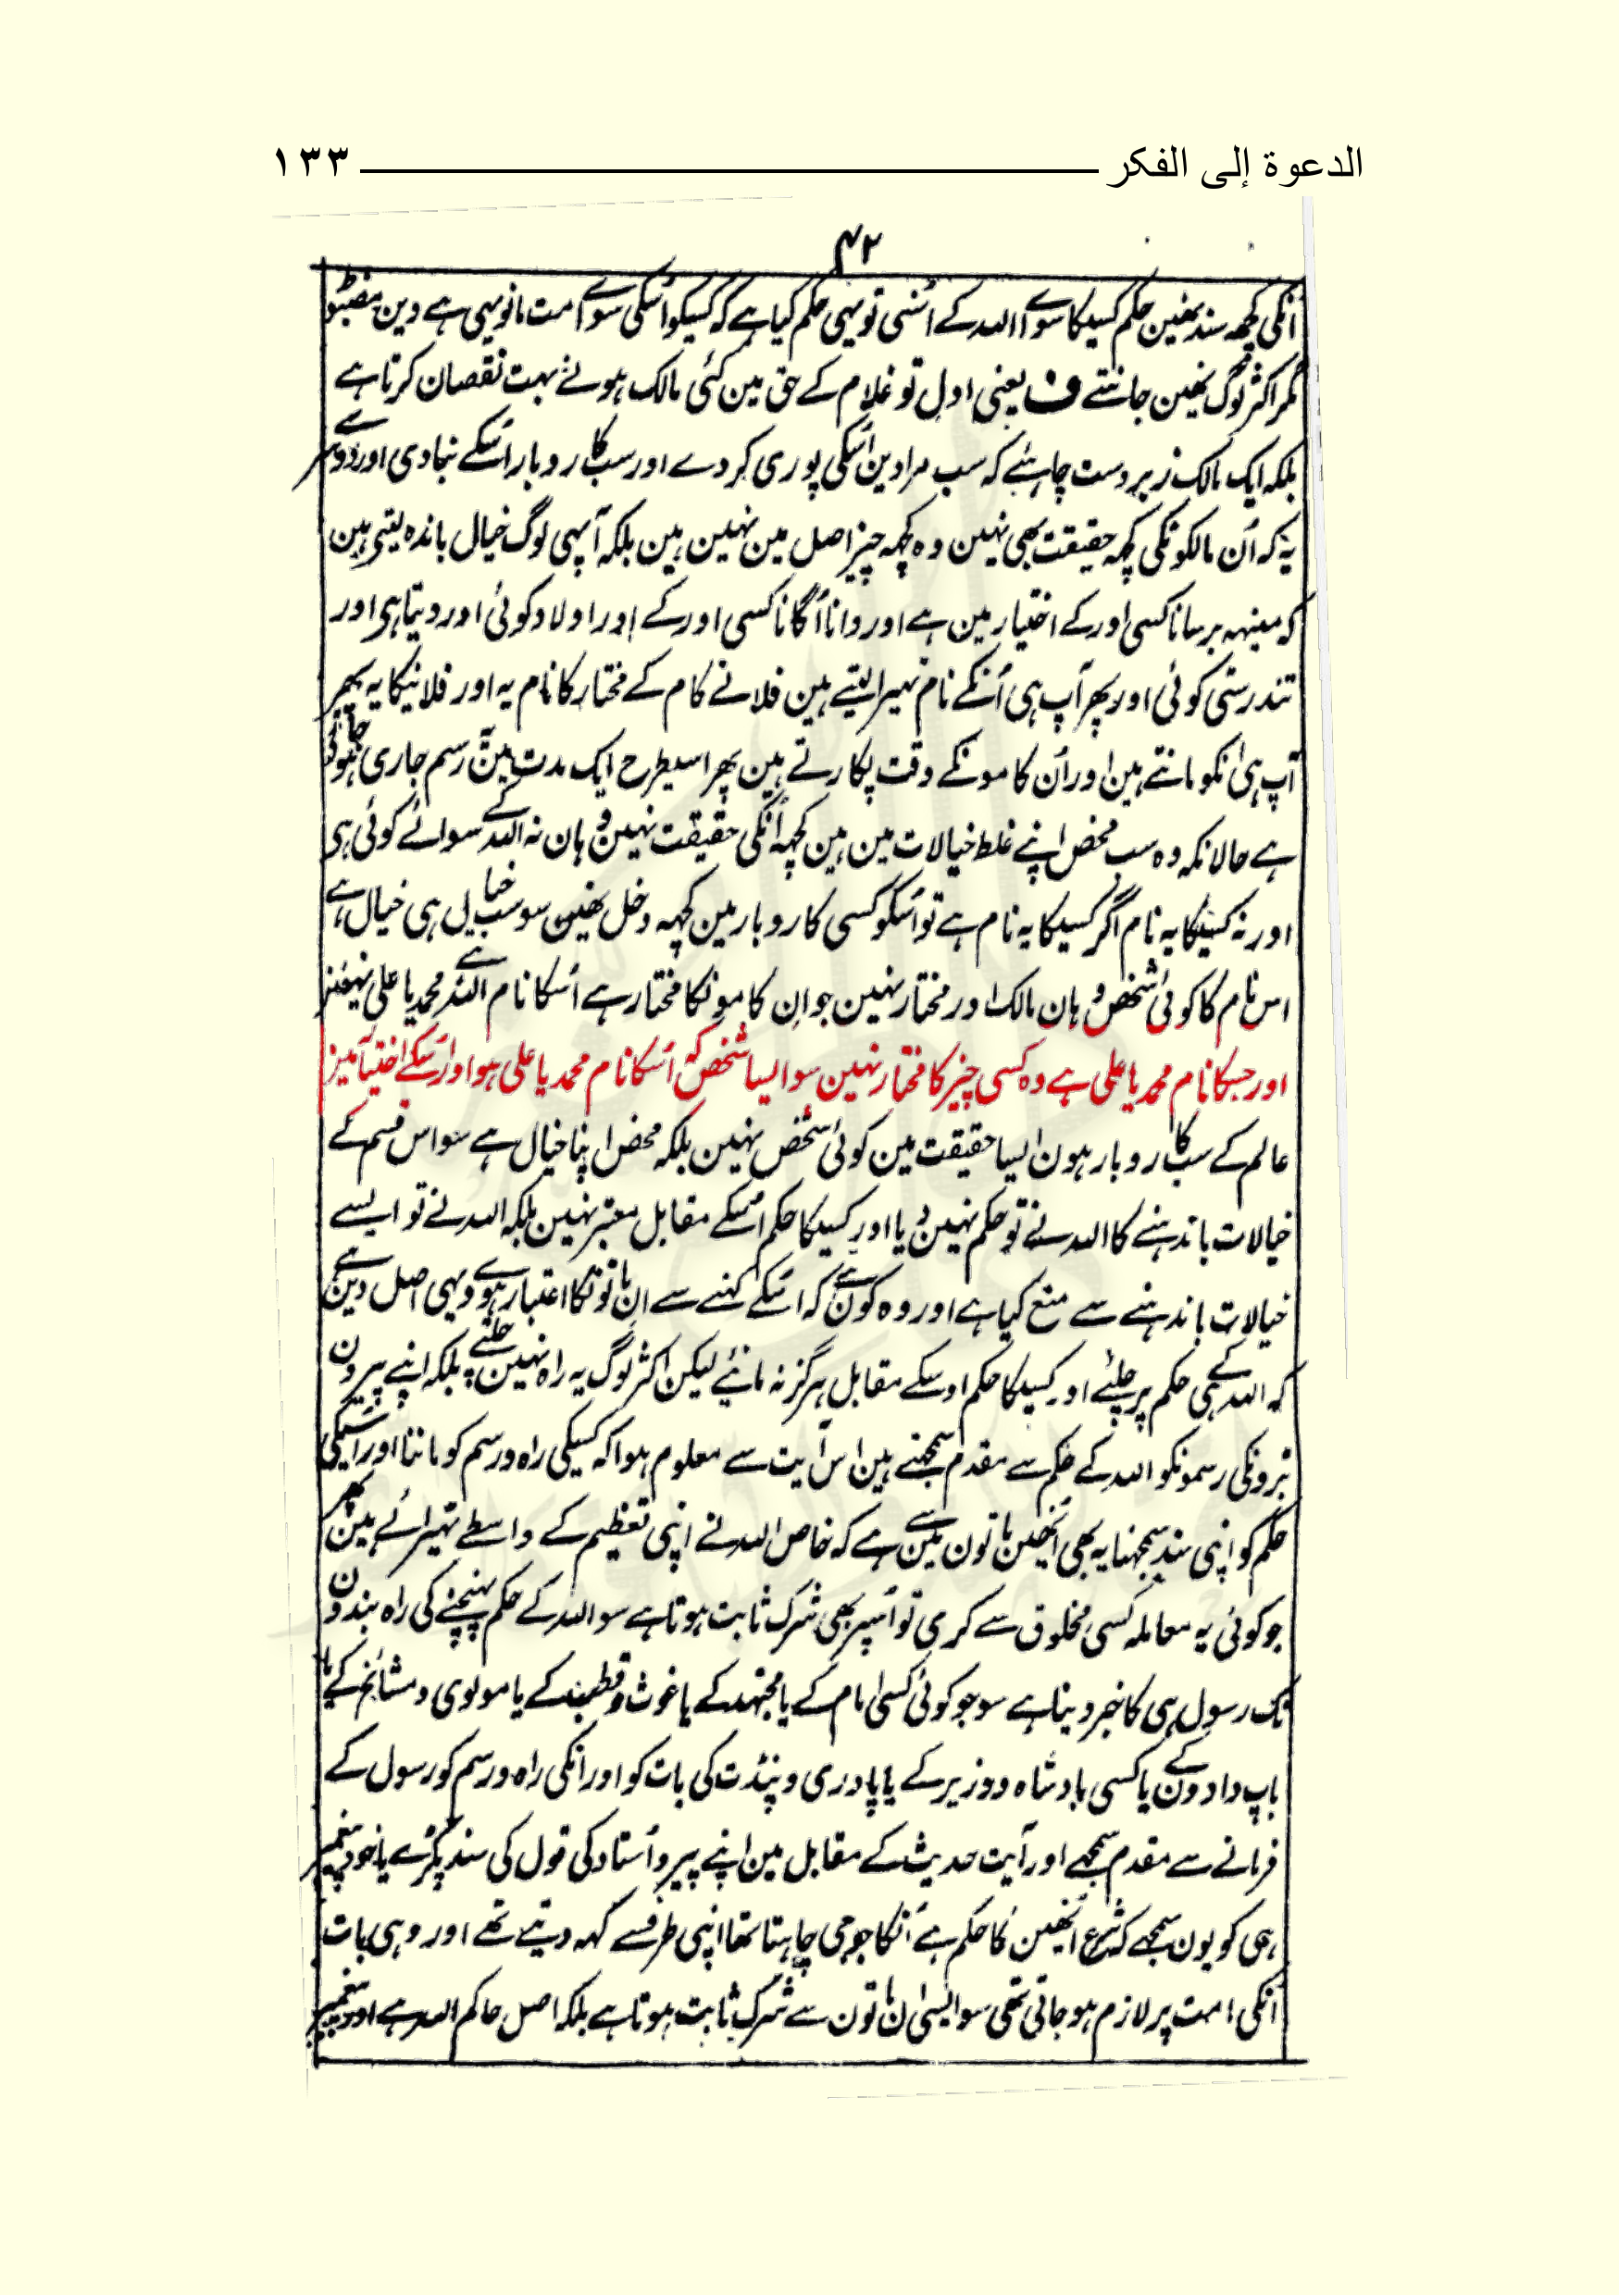 الدعوة إلى الفكر ١٣٣
۴۲
اُنکی کچھ سند نہین حکم کسیکا سوائے اللہ کے اُسنی تو یہی حکم کیا ہے کہ کسیکو اُسکی سوائے مت مانو یہی ہے دین مضبوط
مگر اکثر لوگ نہین جانتے ف یعنی اول تو غلام کے حق مین کئی مالک ہونے بہت نقصان کرتا ہے
بلکہ ایک مالک زبردست چاہئے کہ سب مرادین اُسکی پوری کر دے اور سب کاروبار اُسکے بنا دی اور دوسرے
یہ کہ اُن مالکونکی کچھ حقیقت بھی نہین وہ کچھ چیز اصل مین نہین ہین بلکہ آپہی لوگ خیال باندہ لیتی ہین
کہ مینہہ برسانا کسی اور کے اختیار مین ہے اور دانا اُگانا کسی اور کے اور اولاد کوئی اور دیتا ہی اور
تندرستی کوئی اور پھر آپ ہی اُنکے نام ٹھیرا لیتے ہین فلانے کام کے مختار کا نام یہ اور فلانیکا یہ پھر
آپ ہی انکو مانتے ہین اور اُن کامونکے وقت پکارتے ہین پھر اسیطرح ایک مدت مین رسم جاری ہو جاتی
ہے حالانکہ وہ سب محض اپنے غلط خیالات مین ہین کچہہ اُنکی حقیقت نہین وہان نہ اللہ کے سوائے کوئی ہی
اور نہ کسیکا یہ نام اگر کسیکا یہ نام ہے تو اُسکو کسی کاروبار مین کچہہ دخل نہین سو سب خیال ہی خیال ہے
اس نام کا کوئی شخص وہان مالک اور مختار نہین جو ان کامونکا مختار ہے اُسکا نام اللہ ہے محمد یا علی نہین
اور جسکا نام محمد یا علی ہے وہ کسی چیز کا مختار نہین سو ایسا شخص کہ اُسکا نام محمد یا علی ہو اور اُسکے اختیار مین
عالم کے سب کاروبار ہون ایسا حقیقت مین کوئی شخص نہین بلکہ محض اپنا خیال ہے سو اس قسم کے
خیالات باندہنے کا اللہ نے تو حکم نہین دیا اور کسیکا حکم اُسکے مقابل معتبر نہین بلکہ اللہ نے تو ایسے
خیالات باندہنے سے منع کیا ہے اور وہ کون ہے کہ اُسکے کہنے سے ان باتونکا اعتبار ہووے یہی اصل دین ہے
کہ اللہ کے ہی حکم پر چلئے اور کسیکا حکم اوسکے مقابل ہرگز نہ مانئے لیکن اکثر لوگ یہ راہ نہین چلتے بلکہ اپنے پیرون
کی رسمونکو اللہ کے حکم سے مقدم سمجہتے ہین اس آیت سے معلوم ہوا کہ کسیکی راہ و رسم کو ماننا اور اُسیکی
حکم کو اپنی سند سمجہنا یہ بھی اُنھین باتون مین سے ہے کہ خاص اللہ نے اپنی تعظیم کے واسطے ٹھیرائے ہین پھر
جو کوئی یہ معاملہ کسی مخلوق سے کری تو اُسپر بھی شرک ثابت ہوتا ہے سو اللہ کے حکم پہنچنے کی راہ بندون
تک رسول ہی کا خبر دینا ہے سو جو کوئی کسی امام کے یا مجتہد کے یا غوث و قطب کے یا مولوی و مشائخ کے یا
باپ دادون کے یا کسی بادشاہ و وزیر کے یا پادری و پنڈت کی بات کو اور انکی راہ و رسم کو رسول کے
فرمانے سے مقدم سمجہے اور آیت حدیث کے مقابل مین اپنے پیر و اُستاد کی قول کی سند پکڑے یا خود پیغمبر
ہی کو یون سمجہے کہ شرع اُنھین کا حکم ہے اُنکا جو جی چاہتا تھا اپنی طرف سے کہہ دیتے تھے اور وہی بات
اُنکی امت پر لازم ہو جاتی تھی سو ایسی ان باتون سے شرک ثابت ہوتا ہے بلکہ اصل حاکم اللہ ہے اور پیغمبر